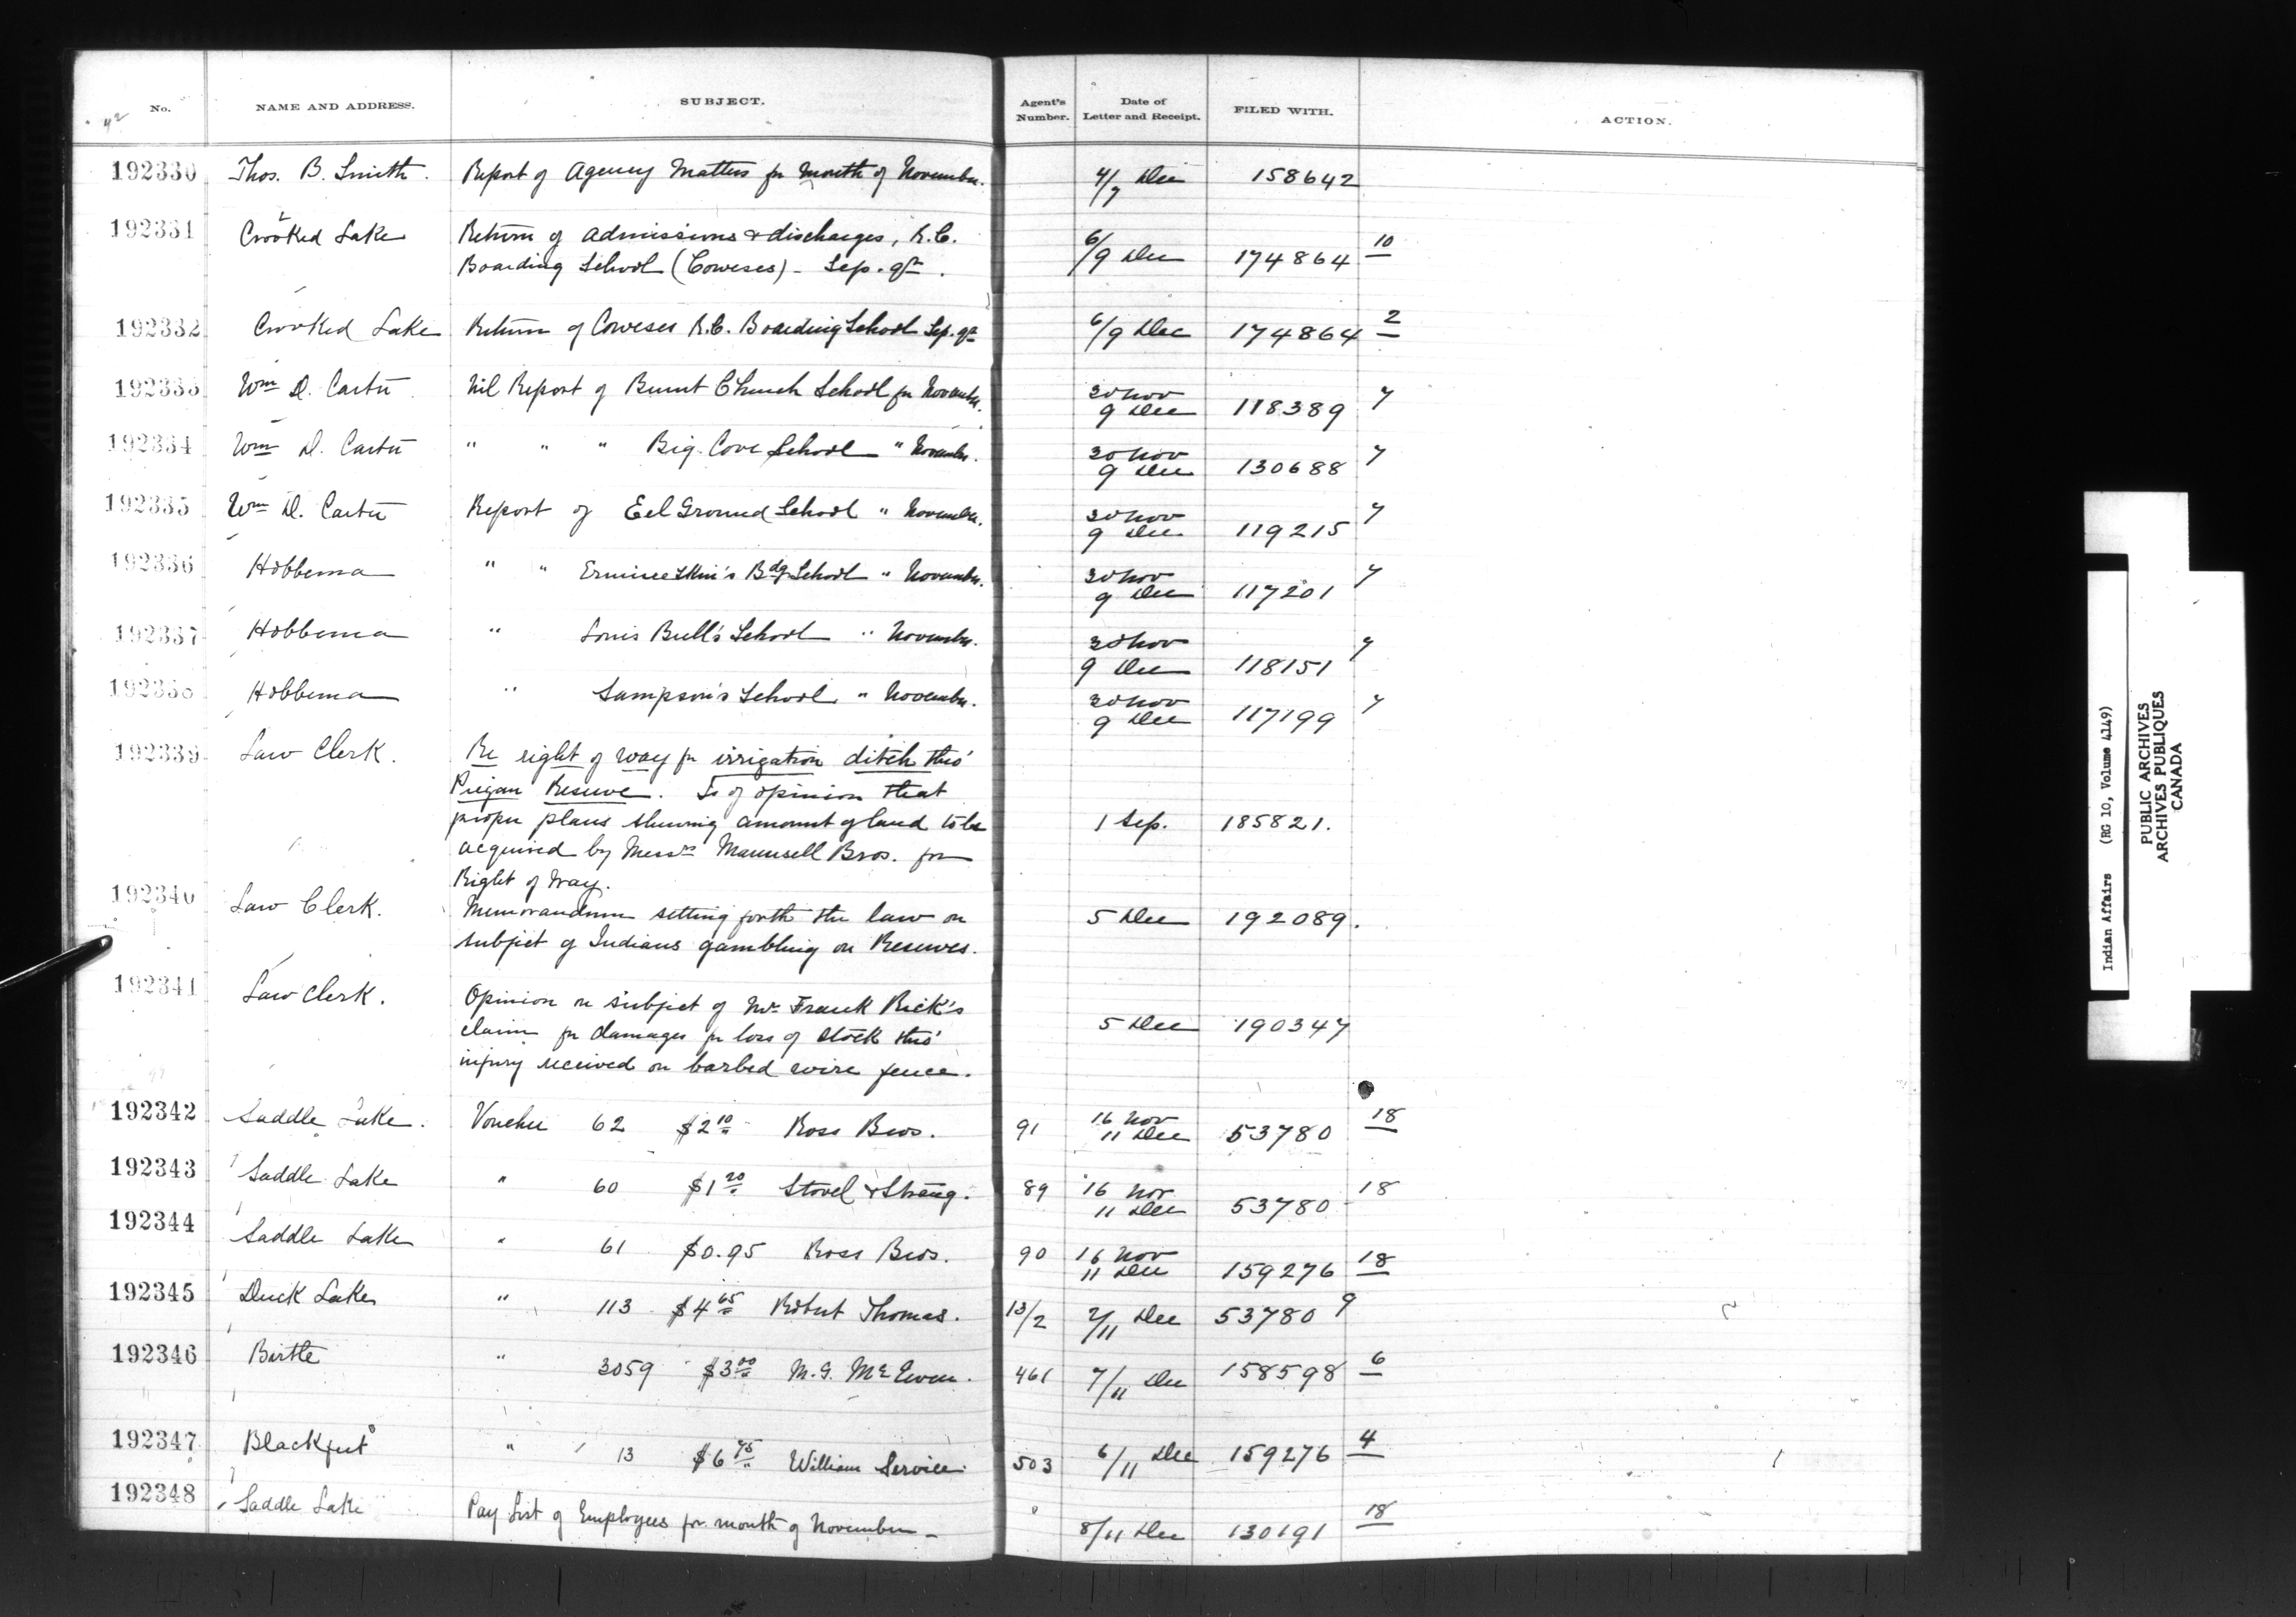 No. NAME AND ADDRESS. SUBJECT. Agent's Number. Date of Letter and Receipt. FILED WITH. ACTION.
42
192330 Thos. B. Smith. Report of Agency Matters for month of November. 4/7 Dec 158642
192331 Crooked Lake Return of admissions & discharges, R.C. 6/9 Dec 174864 10
Boarding School (Coweses) - Sep. qr.
192332 Crooked Lake Return of Coweses R.C. Boarding School Sep. qr 6/9 Dec 174864 2
192333 Wm D. Carter Nil Report of Burnt Church School for November. 30 Nov 9 Dec 118389 7
192334 Wm D. Carter " " " Big Cove School " November. 30 Nov 9 Dec 130688 7
192335 Wm D. Carter Report of Eel Ground School " November. 30 Nov 9 Dec 119215 7
192336 Hobbema " " Ermineskin's Bdg School " November. 30 Nov 9 Dec 117201 7
192337 Hobbema " Louis Bull's School " November. 30 Nov 9 Dec 118151 7
192338 Hobbema " Sampson's School " November. 30 Nov 9 Dec 117199 7
192339 Law Clerk. Re right of way for irrigation ditch thro'
Peigan Reserve. Is of opinion that
proper plans shewing amount of land to be 1 Sep. 185821.
acquired by Messrs Maunsell Bros. for
Right of Way.
192340 Law Clerk. Memorandum setting forth the law on 5 Dec 192089.
subject of Indians gambling on Reserves.
192341 Law Clerk. Opinion on subject of Mr Frank Rick's
claim for damages for loss of stock thro' 5 Dec 190347
injury received on barbed wire fence.
192342 Saddle Lake. Voucher 62 $2 10 Ross Bros. 91 16 Nov 11 Dec 53780 18
192343 Saddle Lake " 60 $1 20 Stovel & Strang. 89 16 Nov 11 Dec 53780 18
192344 Saddle Lake " 61 $0.95 Ross Bros. 90 16 Nov 11 Dec 159276 18
192345 Duck Lake " 113 $4 65 Robert Thomas. 13/2 2/11 Dec 53780 9
192346 Birtle " 3059 $3 00 M. G. McEwen. 461 7/11 Dec 158598 6
192347 Blackfoot " 13 $6 75 William Service. 503 6/11 Dec 159276 4
192348 Saddle Lake Pay List of Employees for month of November - 8/11 Dec 130191 18
Indian Affairs (RG 10, Volume 4149)
PUBLIC ARCHIVES
ARCHIVES PUBLIQUES
CANADA